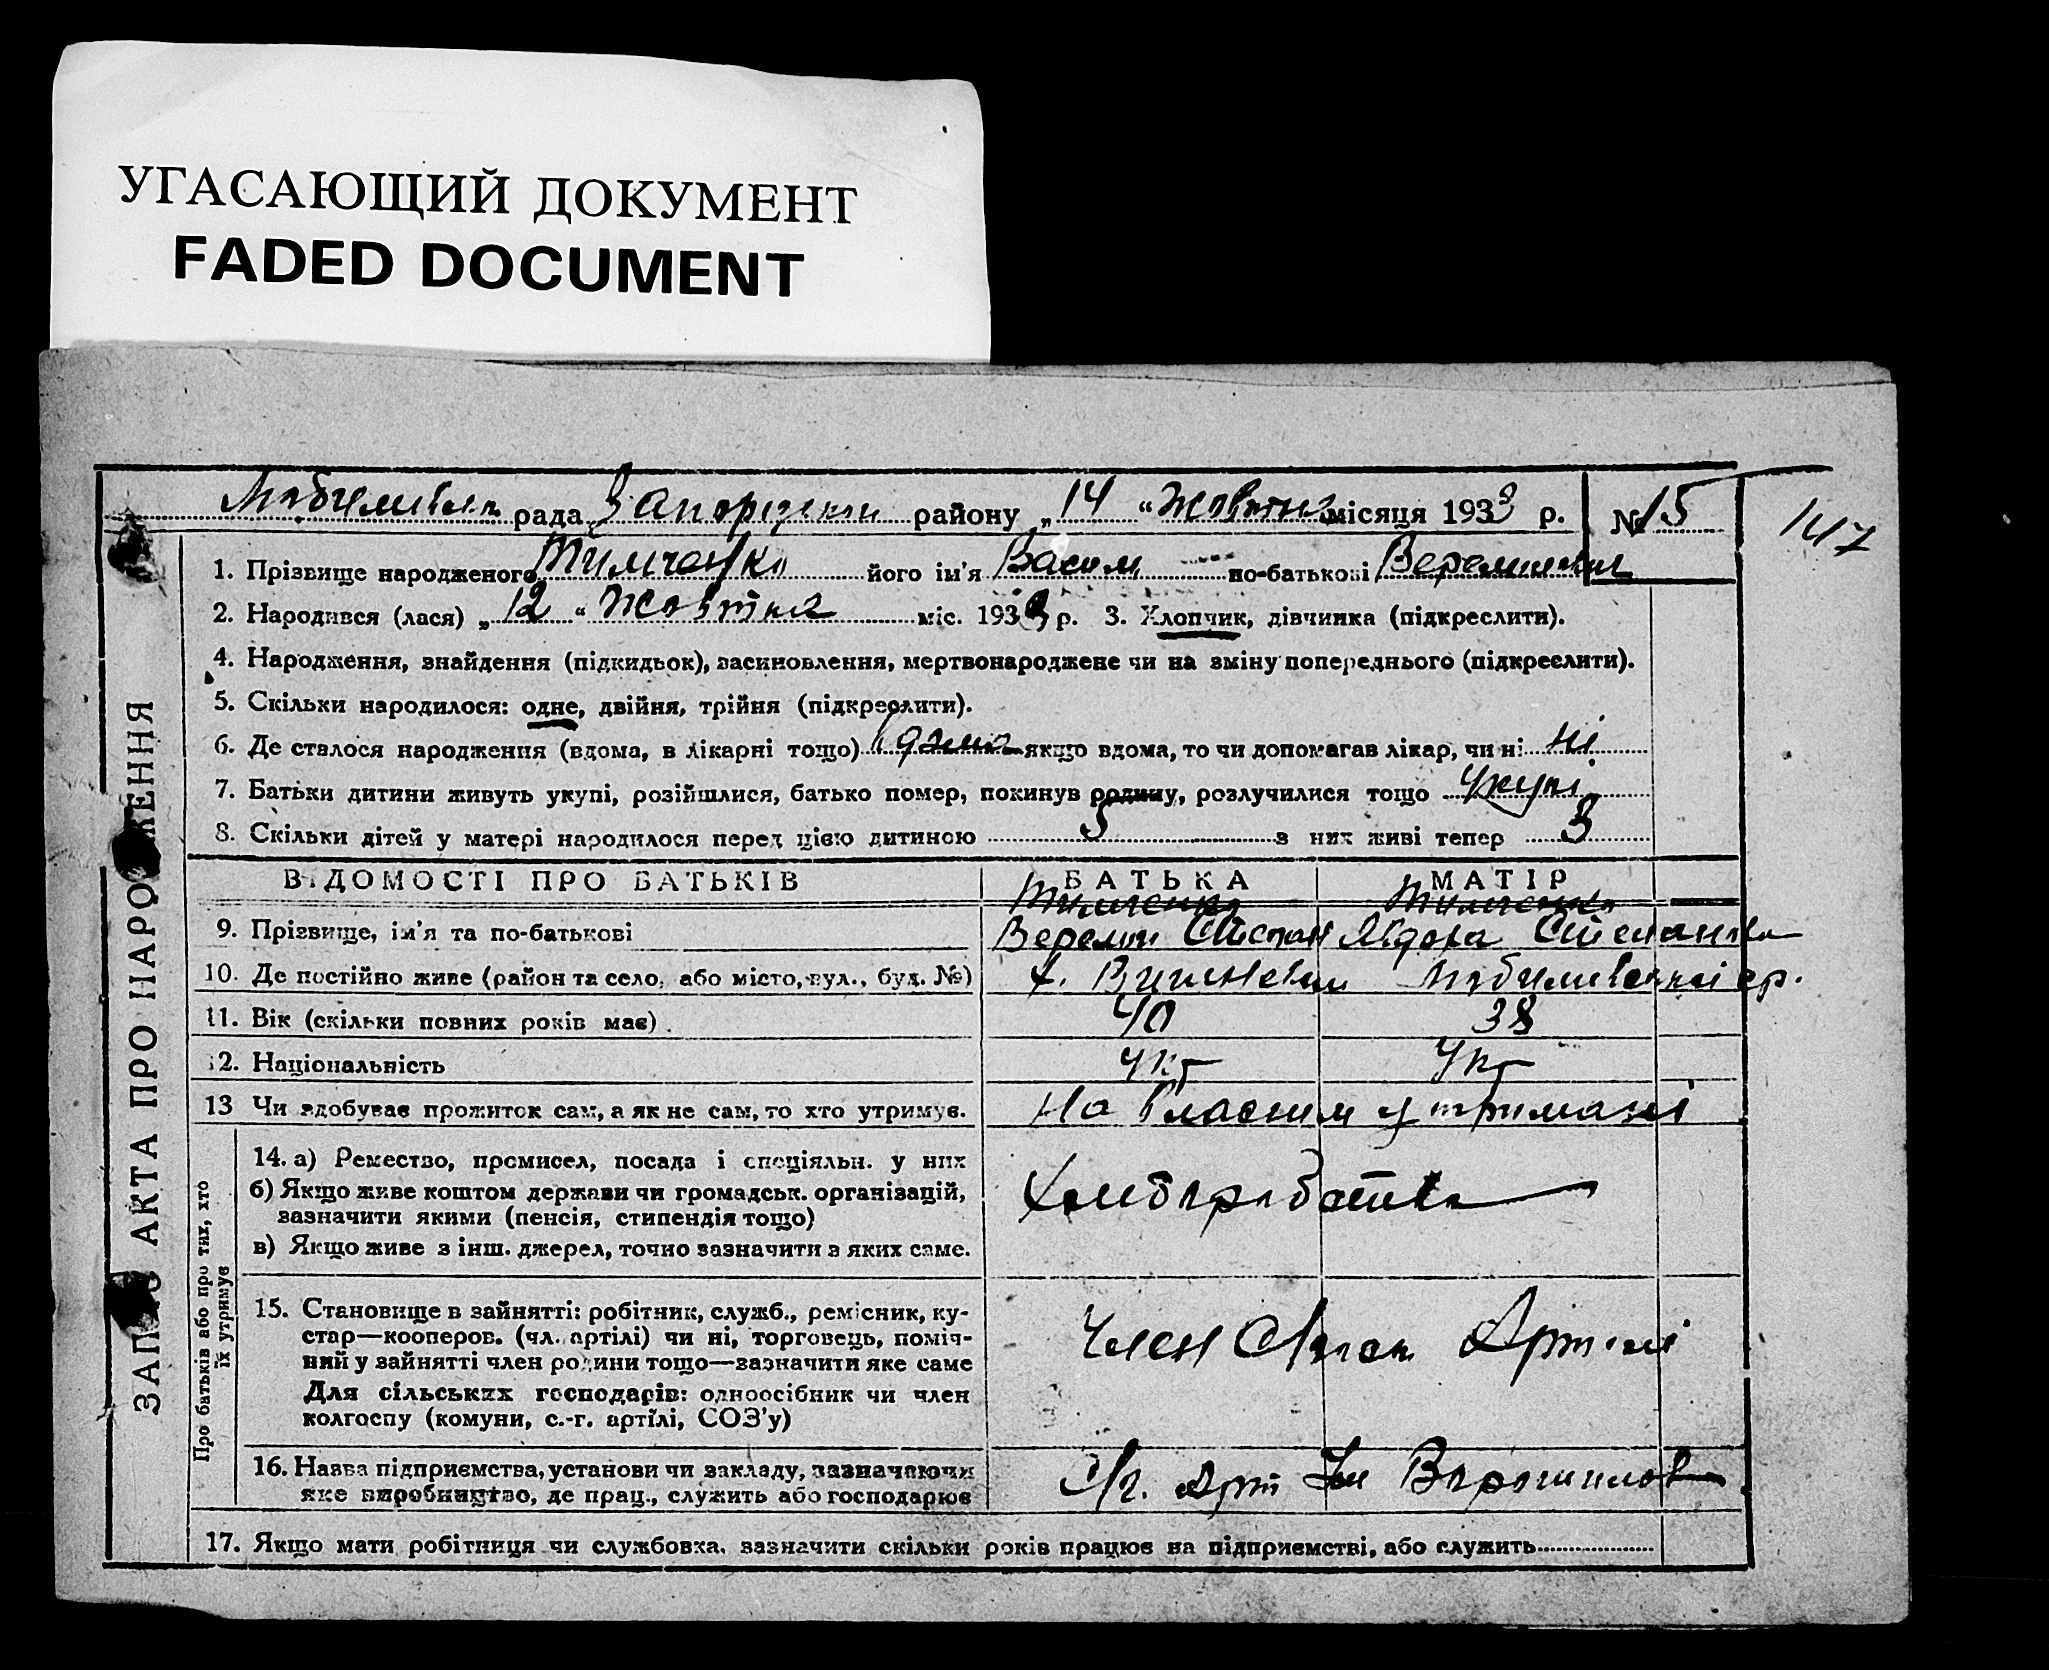 УГАСАЮЩИЙ ДОКУМЕНТ
FADED DOCUMENT
рада Запорізький району „14“ Жовтня місяця 1933 р. № 15
147
1. Прізвище народженого Тимченко його ім'я Васил по-батькові
2. Народився (лася) „12“ Жовтня міс. 1933 р. 3. Хлопчик, дівчинка (підкреслити).
4. Народження, знайдення (підкидьок), засиновлення, мертвонароджене чи на зміну попереднього (підкреслити).
5. Скільки народилося: одне, двійня, трійня (підкреслити).
6. Де сталося народження (вдома, в лікарні тощо) Вдома якщо вдома, то чи допомагав лікар, чи ні ні
7. Батьки дитини живуть укупі, розійшлися, батько помер, покинув родину, розлучилися тощо Укупі
8. Скільки дітей у матері народилося перед цією дитиною 5 з них живі тепер 3
ВІДОМОСТІ ПРО БАТЬКІВ БАТЬКА МАТІР
Тимченко Тимченко
9. Прізвище, ім'я та по-батькові Веремій Степан Явдоха Степанівна
10. Де постійно живе (район та село, або місто, вул., буд. №) х.
11. Вік (скільки повних років має) 40 38
12. Національність Укр Укр
13 Чи здобуває прожиток сам, а як не сам, то хто утримує. На власним утримані
14. а) Ремество, промисел, посада і спеціяльн. у них
б) Якщо живе коштом держави чи громадськ. організацій,
зазначити якими (пенсія, стипендія тощо)
в) Якщо живе з інш. джерел, точно зазначити з яких саме.
15. Становище в зайнятті: робітник, служб., ремісник, ку-
стар—кооперов. (чл. артілі) чи ні, торговець, поміч-
ний у зайнятті член родини тощо—зазначити яке саме
Для сільських господарів: одноосібник чи член
колгоспу (комуни, с.-г. артілі, СОЗ'у)
Член Артілі
16. Назва підприємства, установи чи закладу, зазначаючи
яке виробництво, де прац., служить або господарює
С/г. Арт Ім Ворошилова
17. Якщо мати робітниця чи службовка, зазначити скільки років працює на підприємстві, або служить
ЗАПИС АКТА ПРО НАРОДЖЕННЯ
Про батьків або про тих, хто
їх утримує